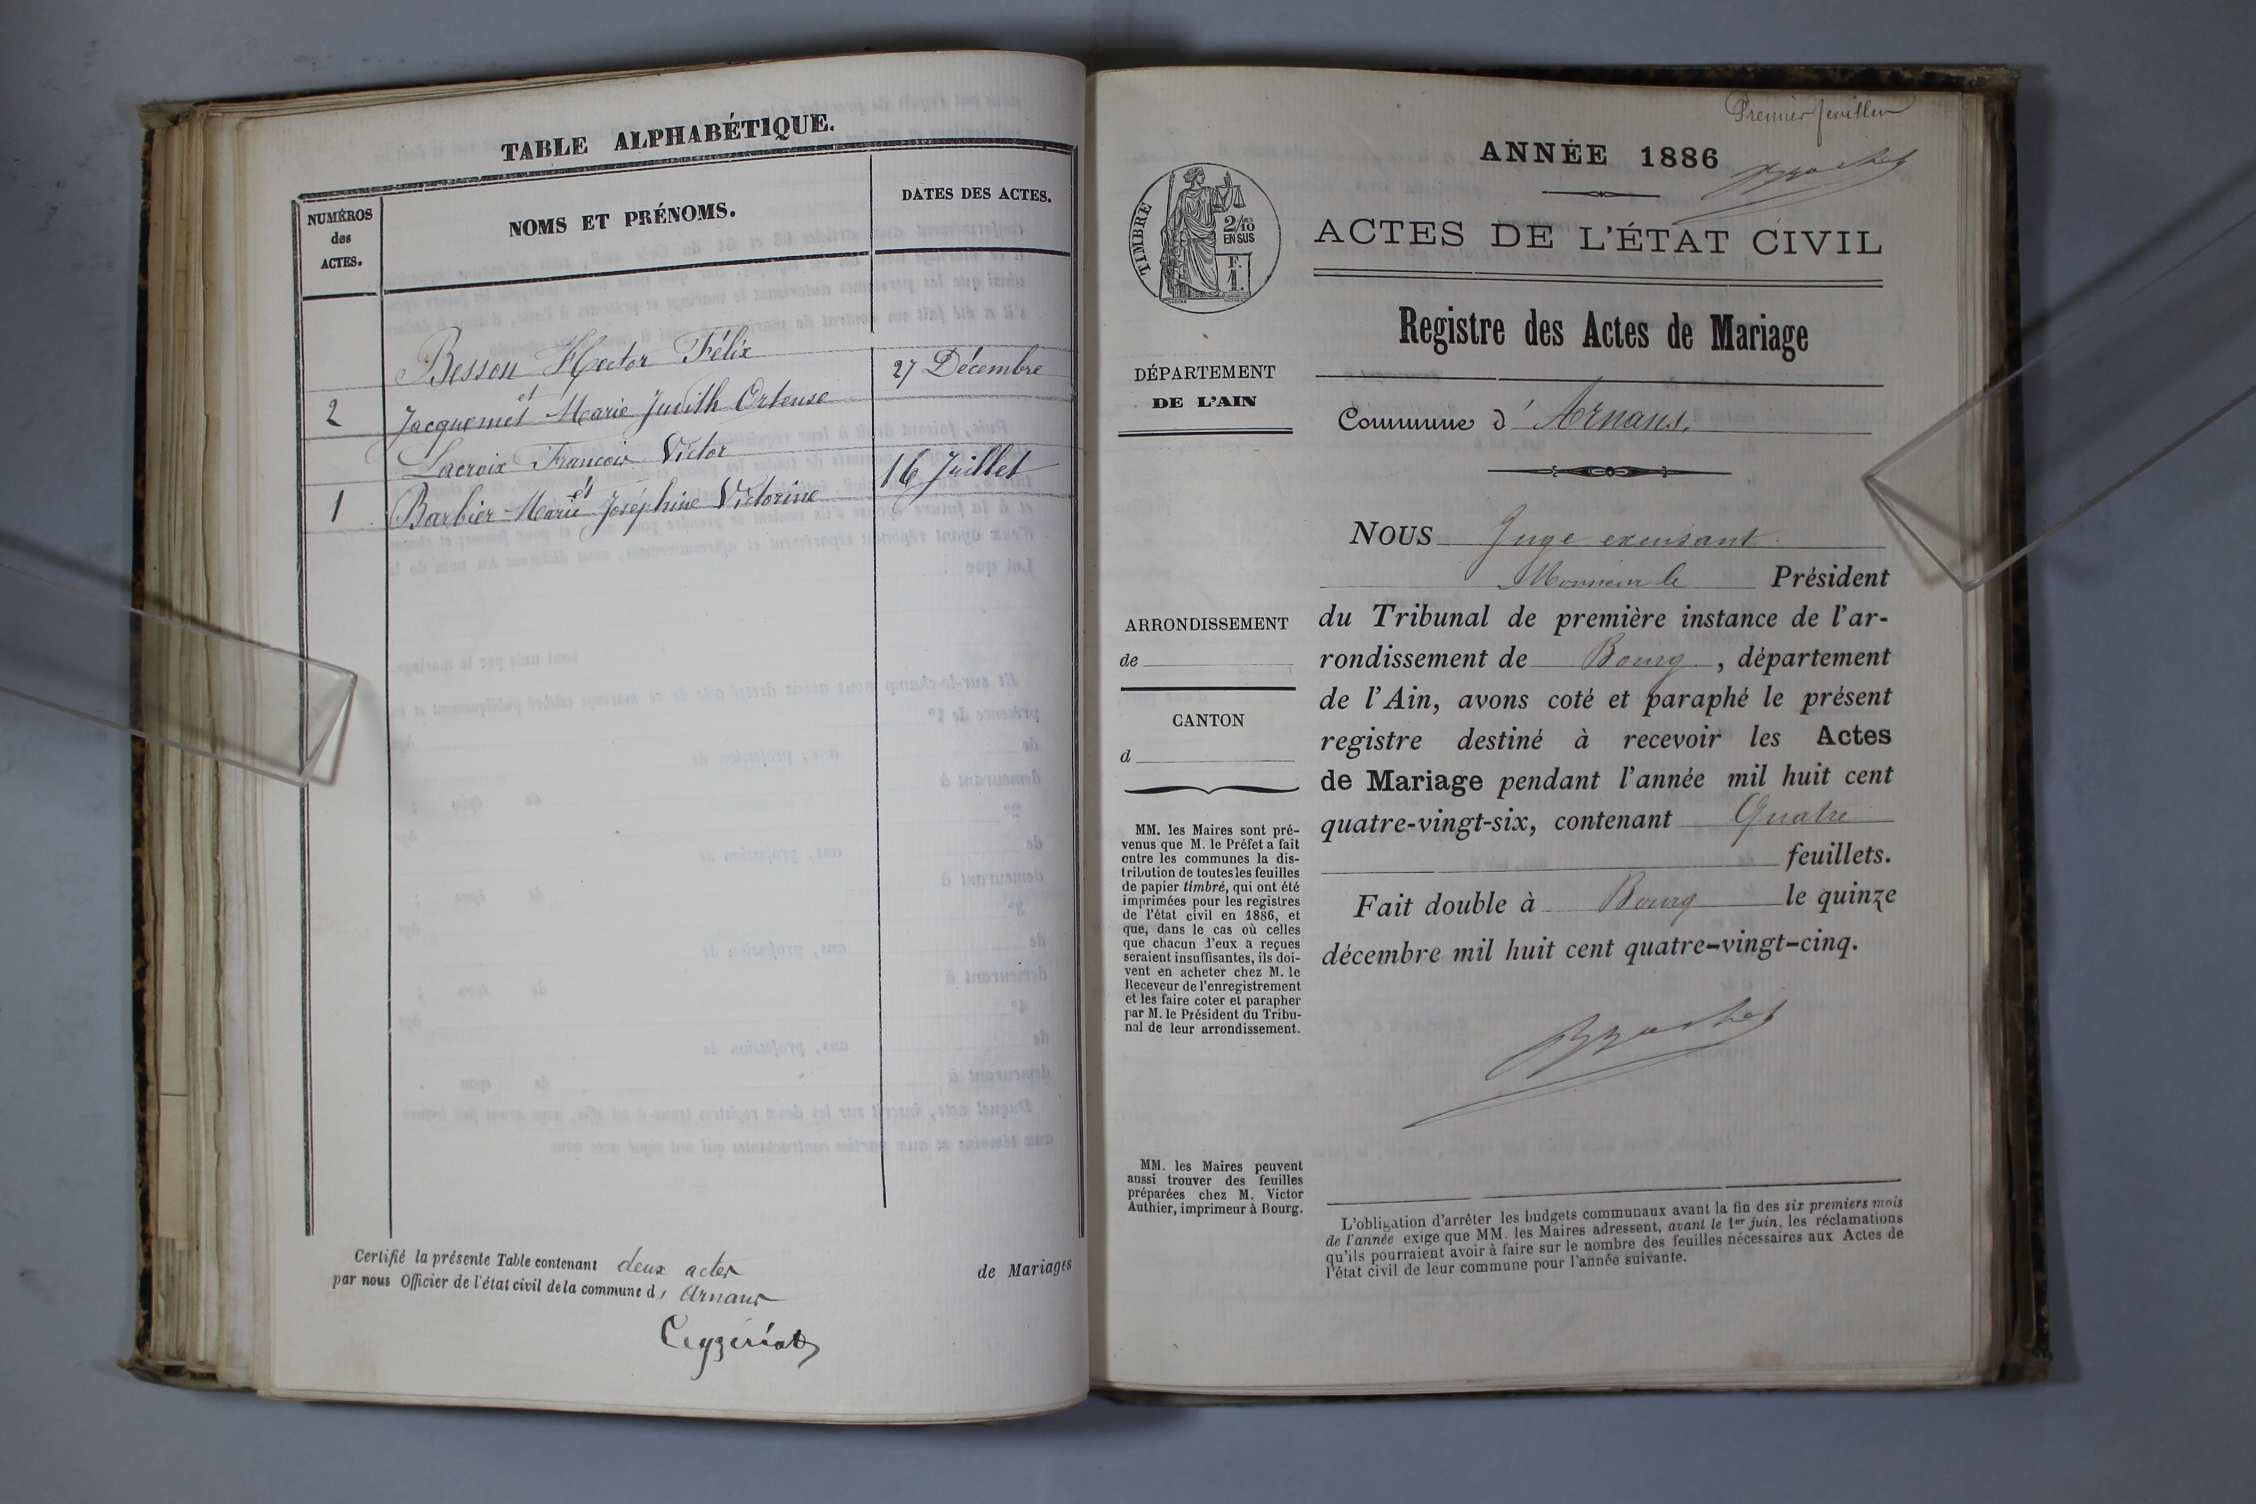 TABLE ALPHABÉTIQUE.
NUMÉROS
des
ACTES.
NOMS ET PRÉNOMS.
DATES DES ACTES.
Besson Hector Félix
27 Décembre
et
2 Jacquemet Marie Judith Ortense
Lacroix François Victor
16 Juillet
et
1 Barbier Marie Joséphine Victorine
Certifié la présente Table contenant deux actes de Mariages
par nous Officier de l'état civil de la commune d' Arnans
Ceyzériat
Premier feuillet
ANNÉE 1886
TIMBRE
2/10 EN SUS
F.
1.
ACTES DE L'ÉTAT CIVIL
Registre des Actes de Mariage
DÉPARTEMENT
DE L'AIN
Commune d' Arnans.
NOUS Juge
Monsieur le Président
du Tribunal de première instance de l'ar-
rondissement de Bourg, département
de l'Ain, avons coté et paraphé le présent
registre destiné à recevoir les Actes
de Mariage pendant l'année mil huit cent
quatre-vingt-six, contenant Quatre
feuillets.
Fait double à Bourg le quinze
décembre mil huit cent quatre-vingt-cinq.
ARRONDISSEMENT
de
CANTON
d
MM. les Maires sont pré-
venus que M. le Préfet a fait
entre les communes la dis-
tribution de toutes les feuilles
de papier timbré, qui ont été
imprimées pour les registres
de l'état civil en 1886, et
que, dans le cas où celles
que chacun d'eux a reçues
seraient insuffisantes, ils doi-
vent en acheter chez M. le
Receveur de l'enregistrement
et les faire coter et parapher
par M. le Président du Tribu-
nal de leur arrondissement.
MM. les Maires peuvent
aussi trouver des feuilles
préparées chez M. Victor
Authier, imprimeur à Bourg.
L'obligation d'arrêter les budgets communaux avant la fin des six premiers mois
de l'année exige que MM. les Maires adressent, avant le 1er juin, les réclamations
qu'ils pourraient avoir à faire sur le nombre des feuilles nécessaires aux Actes de
l'état civil de leur commune pour l'année suivante.